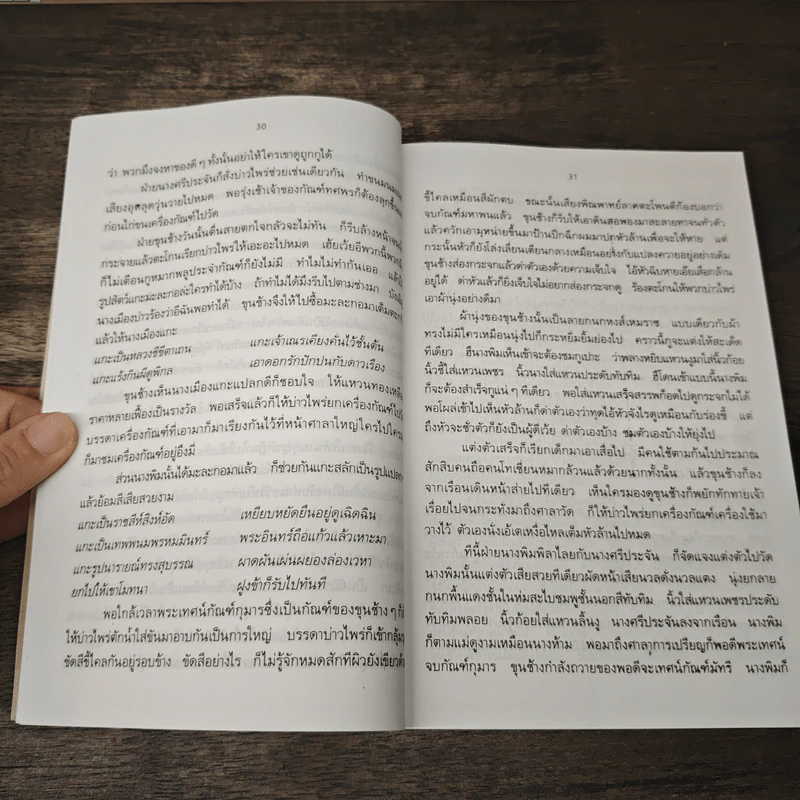 30
ว่า พวกมึงจงหาของดี ๆ ทั้งนั้นอย่าให้ใครเขาดูถูกกูได้
ฝ่ายนางศรีประจันก็สั่งบ่าวไพร่ช่วยเช่นเดียวกัน ทำขนมนมเนย
เสียงอุตลุดวุ่นวายไปหมด พอรุ่งเช้าเจ้าของกัณฑ์ทศพรก็ต้องลุกขึ้น
ก่อนไก่ขนเครื่องกัณฑ์ไปวัด
ฝ่ายขุนช้างวันนั้นตื่นสายตกใจกลัวจะไม่ทัน ก็รีบล้างหน้าจน
กระจายแล้วตะโกนเรียกบ่าวไพร่ให้เอะอะไปหมด เฮ้ยเว้ยอีพวกนี้
ก็ไม่เตือนกูหมากพลูประจำกัณฑ์ก็ยังไม่มี ทำไมไม่ทำกันเออ แล้ว
รูปสัตว์แกะมะละกอล่ะใครทำได้บ้าง ถ้าทำไม่ได้มึงรีบไปตามช่างมา
นางเมืองบ่าวร้องว่าอีฉันพอทำได้ ขุนช้างจึงให้ไปซื้อมะละกอมาเต็ม
แล้วให้นางเมืองแกะ
แกะเป็นหลวงชีขี่ตาเถน แกะเจ้าเณรเคียงคั่นไว้ชั้นต้น
แกะแร้งกินผีดูพิกล เอาดอกรักปักปนกับดาวเรือง
ขุนช้างเห็นนางเมืองแกะแปลกดีก็ชอบใจ ให้แหวนทอง
ราคาหลายเฟื้องเป็นรางวัล พอเสร็จแล้วก็ให้บ่าวไพร่ยกเครื่องกัณฑ์ไป
บรรดาเครื่องกัณฑ์ที่เอามาก็มาเรียงกันไว้ที่หน้าศาลาใหญ่ใครไปใคร
ก็มาชมเครื่องกัณฑ์อยู่อึงมี่
ส่วนนางพิมนั้นได้มะละกอมาแล้ว ก็ช่วยกันแกะสลักเป็นรูป
แล้วย้อมสีเสียสวยงาม
แกะเป็นราชสีห์สิงห์อัด เหยียบหยัดยืนอยู่ดูเฉิดฉิน
แกะเป็นเทพพนมพรหมมินทร์ พระอินทร์ถือแก้วแล้วเหาะมา
แกะรูปนารายณ์ทรงสุบรรณ ผาดผันเผ่นผยองล่องเวหา
ยกไปให้เขาโมทนา ฝูงข้าก็รับไปทันที
พอใกล้เวลาพระเทศน์กัณฑ์กุมารซึ่งเป็นกัณฑ์ของขุนช้าง ๆ ก็
ให้บ่าวไพร่ตักน้ำใส่ขันมาอาบกันเป็นการใหญ่ บรรดาบ่าวไพร่ก็เข้ากลุ้ม
ขัดสีขี้ไคลกันอยู่รอบข้าง ขัดสีอย่างไร ก็ไม่รู้จักหมดสักทีผิวยังเขียว
31
ขี้ไคลเหมือนสีผักตบ ขณะนั้นเสียงพิณพาทย์ลาดตะโพนดีก้องบอกว่า
จบกัณฑ์มหาพนแล้ว ขุนช้างก็รีบให้เอาดินสอพองมาละลายทาจนทั่วตัว
แล้วควักเอามุหน่ายขึ้นมาป้ายปีกฉีกผมมาปกหัวล้านเพื่อจะให้หาย แต่
กระนั้นหัวก็ยังโล่งเลี่ยนเตียนกลางเหมือนอย่างกับแปลงควายอยู่อย่างเดิม
ขุนช้างส่องกระจกแล้วด่าตัวเองด้วยความเจ็บใจ ไอ้หัวฉิบหายเอ๊ยเสือกล้าน
อยู่ได้ ด่าหัวแล้วก็ยิ่งเจ็บใจไม่อยากส่องกระจกดู ร้องตะโกนให้พวกบ่าวไพร่
เอาผ้านุ่งอย่างดีมา
ผ้านุ่งของขุนช้างนั้นเป็นลายกนกหงส์เหมราช แบบเดียวกับผ้า
ทรงไม่มีใครเหมือนนุ่งไปก็กระหยิ่มยิ้มย่องไป คราวนี้กูจะแต่งให้สะเด็ด
ทีเดียว อีนางพิมเห็นเข้าจะต้องชมกูเปาะ ว่าพลางหยิบแหวนงูมาใส่นิ้วก้อย
นิ้วชี้ใส่แหวนเพชร นิ้วนางใส่แหวนประดับทับทิม อีโดนเข้าแบบนี้นางพิม
ก็จะต้องสำเร็จกูแน่ ๆ ทีเดียว พอใส่แหวนเสร็จสรรพก็อดไปดูกระจกไม่ได้
พอโผล่เข้าไปเห็นหัวล้านก็ด่าตัวเองว่าทุดไอ้หัวจังไรดูเหมือนกับร่องขี้ แต่
ถึงหัวจะชั่วตัวก็ยังเป็นผู้ดีเว้ย ด่าตัวเองบ้าง ชมตัวเองบ้างให้ยุ่งไป
แต่งตัวเสร็จก็เรียกเด็กมาเอาเสื่อไป มีคนใช้ตามกันไปประมาณ
สักสิบคนถือคนโทเชี่ยนหมากล้วนแล้วด้วยนากทั้งนั้น แล้วขุนช้างก็ลง
จากเรือนเดินหน้าส่ายไปทีเดียว เห็นใครมองดูขุนช้างก็พยักทักทายเจ้า
เรื่อยไปจนกระทั่งมาถึงศาลาวัด ก็ให้บ่าวไพร่ยกเครื่องกัณฑ์เครื่องใช้มา
วางไว้ ตัวเองนั่งเอ้เตเหงื่อไหลเต็มหัวล้านไปหมด
ทีนี้ฝ่ายนางพิมพิลาไลยกับนางศรีประจัน ก็จัดแจงแต่งตัวไปวัด
นางพิมนั้นแต่งตัวเสียสวยทีเดียวผัดหน้าเสียนวลดั่งนวลแตง นุ่งยกลาย
กนกพื้นแดงชั้นในห่มสไบชมพูชั้นนอกสีทับทิม นิ้วใส่แหวนเพชรประดับ
ทับทิมพลอย นิ้วก้อยใส่แหวนลิ้นงู นางศรีประจันลงจากเรือน นางพิม
ก็ตามแม่ดูงามเหมือนนางห้าม พอมาถึงศาลาการเปรียญก็พอดีพระเทศน์
จบกัณฑ์กุมาร ขุนช้างกำลังถวายของพอดีจะเทศน์กัณฑ์มัทรี นางพิมก็